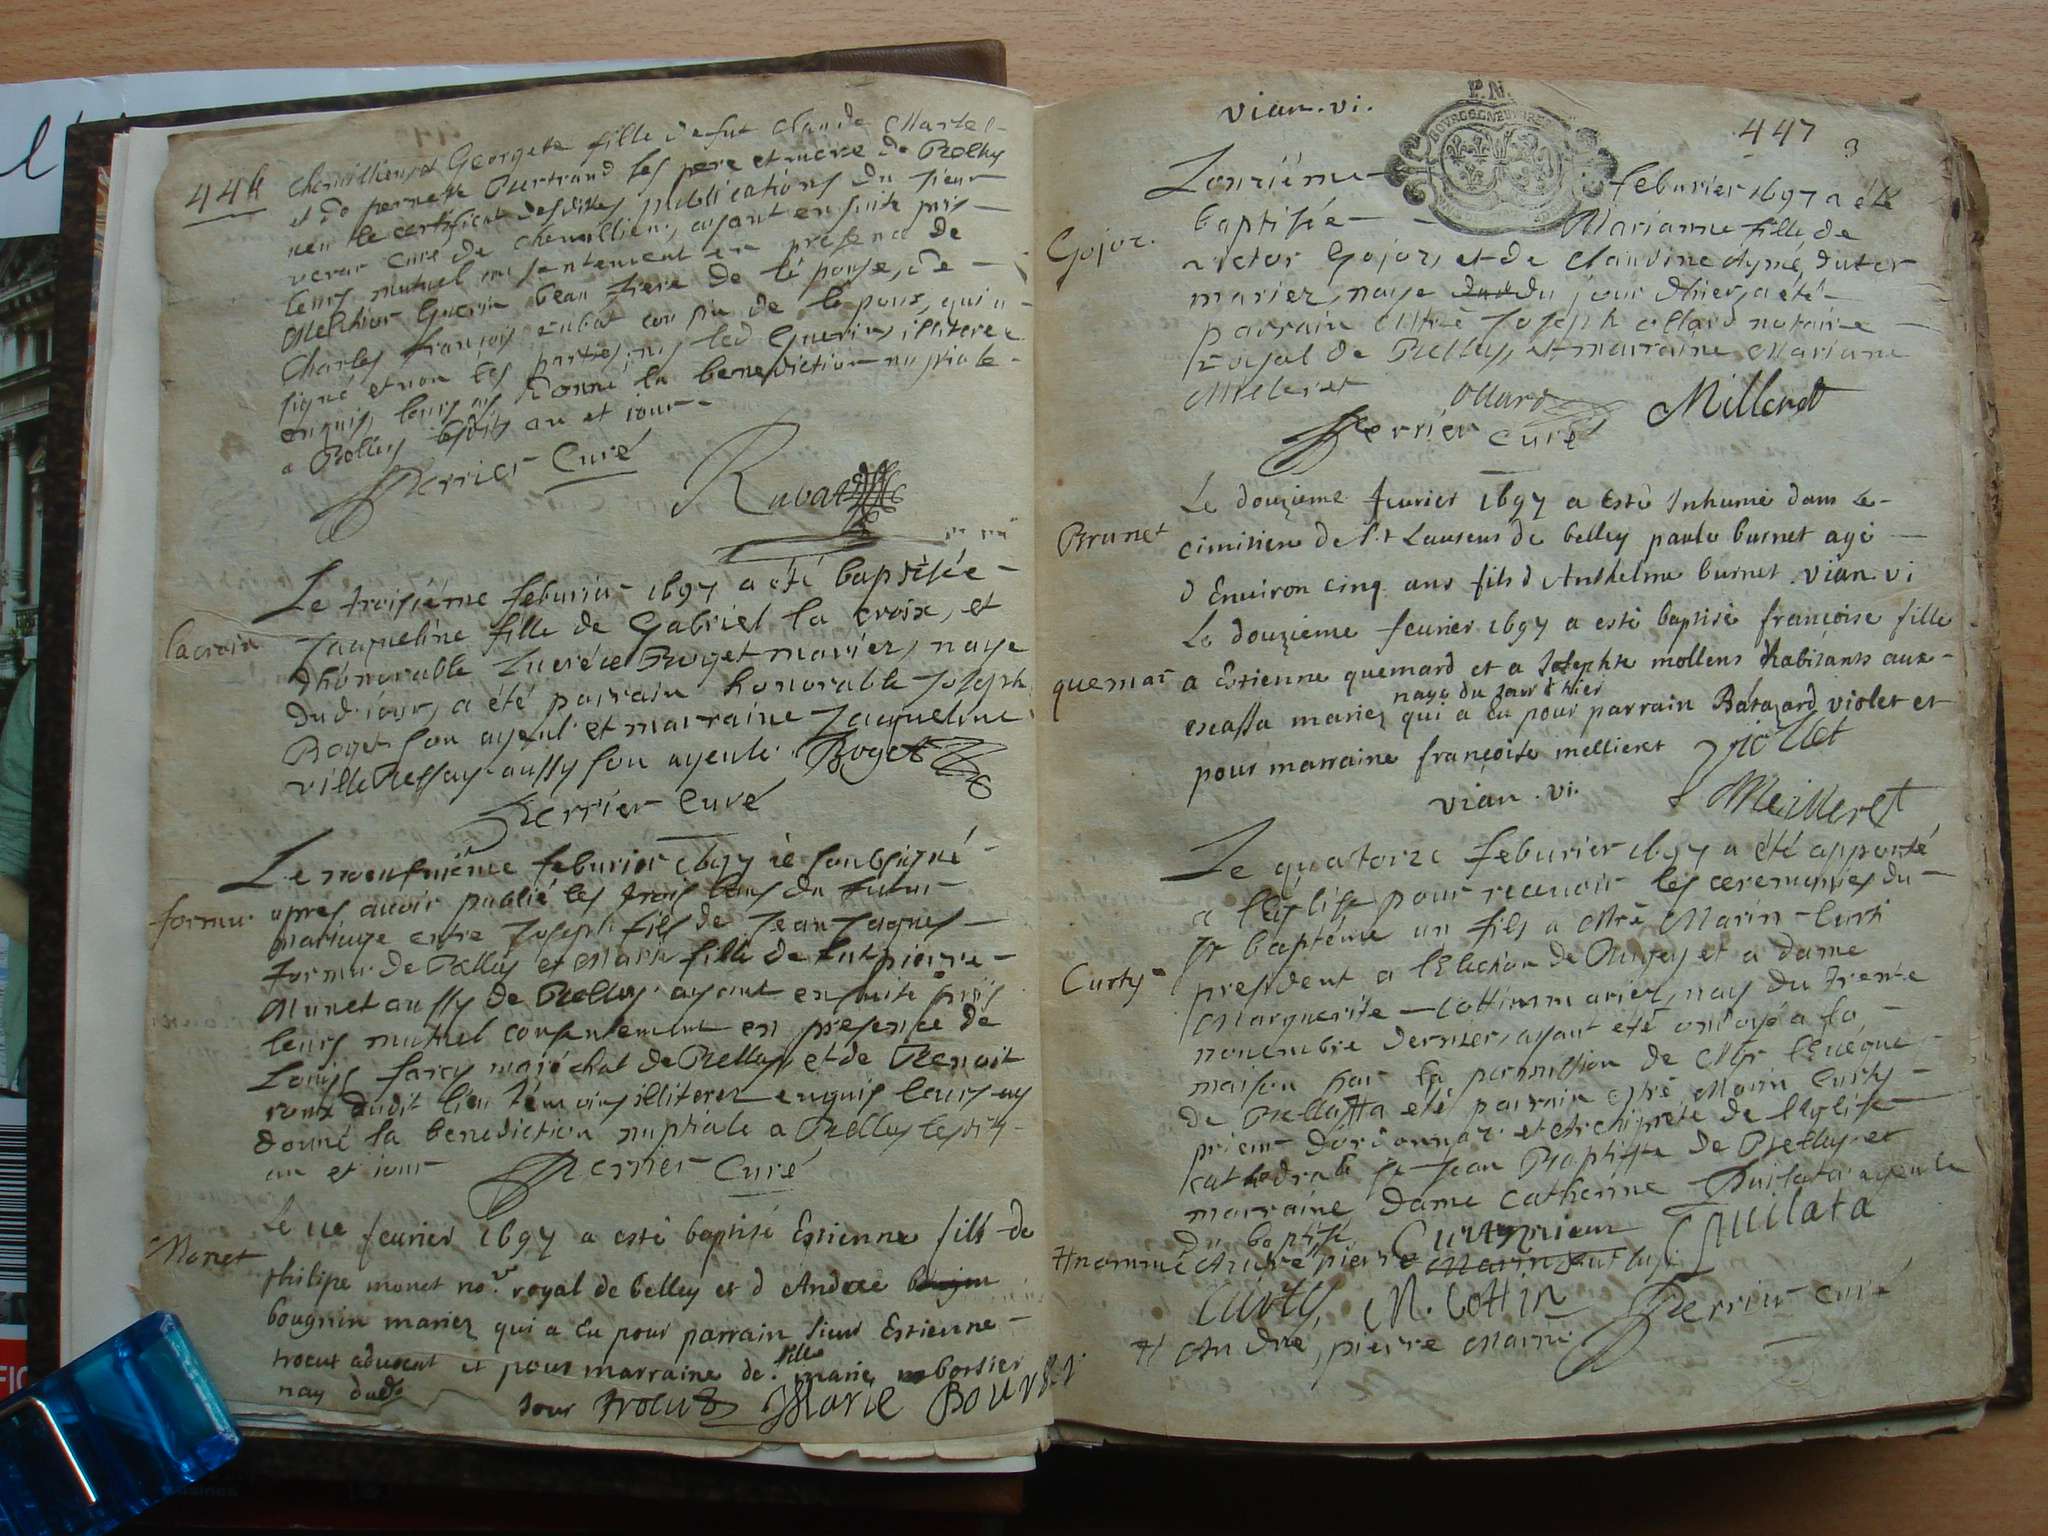 446
Chevillieu et Georgete fille de fut Claude Martel
et de pernette Bertrand ses pere et mere de Belley
veu le certificat desdittes publications du sieur
curé de chevillieu, ayant ensuite pris
leurs mutuel consentement en presence de
Melchior Guerin beau frere de l'épouse, de
Charles françois rubat cousin de l'epoux, qui a
signé et non les parties, ny led Guerin illiterez
enquis, leurs ay donné la benediction nuptiale
a Belley lesdits an et iour
Perrier Curé
Rubat
Le troisiéme feburier 1697 a été baptisée
lacroix
Jaqueline fille de Gabriel la croix, et
d'honorable Lucréce Roget mariez, naye
dud. iour, a été parrain honorable Joseph
Roget son ayeul et marraine Jaqueline
ville Ressay aussy son ayeule. Roget
Perrier Curé
Le neufuiéme feburier 1697 ie soubsigné
formu
apres avoir publié les trois bans du futur
mariage entre Joseph fils de Jean Jaques
formu de Belley et Marie fille de fut pierre
Munet aussy de Belley ayant ensuite pris
leurs mutuel consentement en presence de
Louis farcy maréchal de Belley et de Benoit
roux dudit lieu témoins illiterez enquis leurs ay
donné la benediction nuptiale a Belley lesdits
an et iour Perrier Curé
Monet
Le 11e feurier 1697 a esté baptisé Estienne fils de
philipe monet no.re royal de belley et d Andrée
bougnin mariez qui a Eu pour parrain sieur Estienne
trocut aduocat et pour marraine de.lle marie bortier
nay dud.
Jour trocut Marie Bour
vian. vi.
447
3
P.N.
BOURGOGNE
L'onziéme feburier 1697 a été
Gojoz.
baptisée Marianne fille de
victor Gojoz, et de Claudine Aymé, duter
mariez, naye du jour d'hier, a été
parrain Mtre Joseph ollard notaire
royal de Belley, et marraine Mariane
Milleret
ollard Milleret
Perrier Curé
Le douzieme feurier 1697 a Esté Inhumé dans Le
Brunet
cimitiere de st Laurens de belley paule burnet agé
d Enuiron cinq ans fils d Anthelme burnet. vian. vi
Le douzieme feurier 1697 a esté baptisé françoise fille
quemar
a Estienne quemard et a Josephte mollens habitants aux
naye du jour d hier
escassa mariez qui a Eu pour parrain Batazard violet et
pour marraine françoise mellieret violet
vian. vi. Meilleret
Le quatorze feburier 1697 a été apporté
a l'Eglise pour receuoir les ceremonies du
st baptéme un fils a Mtre Marin Curti
Curty
president a l'Election de Bugey et a dame
Marguerite Cottin mariez, nay du trente
nouembre dernier, ayant été ondoyé a la
maison par la permission de Mgr l'Euéque
de Belley a été parrain Mtre Marin Curty
prieur d'ordonnaz et Archiprétre de l'Eglise
cathedrale st Jean Baptiste de Belley et
marraine Dame Catherine Quilata ayeule
du baptisé Curty prieur C quilata
# nommé André pierre
Curty, M. Cottin Perrier curé
# André, pierre Marin